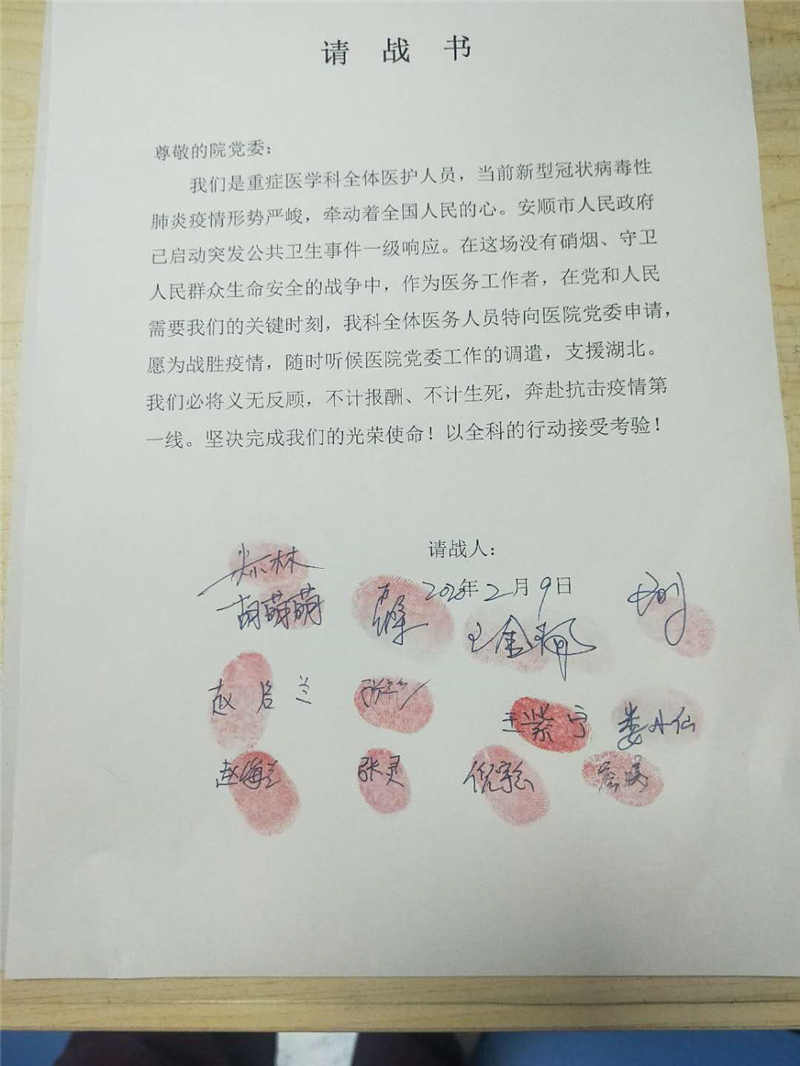 请战书
尊敬的院党委：
我们是重症医学科全体医护人员，当前新型冠状病毒性
肺炎疫情形势严峻，牵动着全国人民的心。安顺市人民政府
已启动突发公共卫生事件一级响应。在这场没有硝烟、守卫
人民群众生命安全的战争中，作为医务工作者，在党和人民
需要我们的关键时刻，我科全体医务人员特向医院党委申请，
愿为战胜疫情，随时听候医院党委工作的调遣，支援湖北。
我们必将义无反顾，不计报酬、不计生死，奔赴抗击疫情第
一线。坚决完成我们的光荣使命！以全科的行动接受考验！
请战人：
2020年2月9日
胡萌萌
赵启兰
王紫宁 娄丹仙
赵海兰 张灵